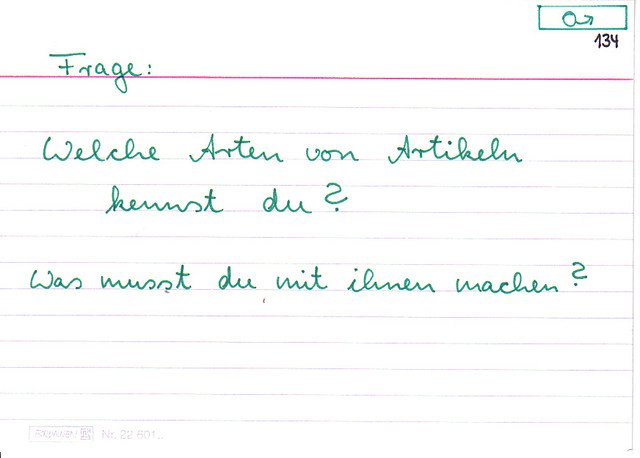 134
Frage:
Welche Arten von Artikeln
kennst du?
Was musst du mit ihnen machen?
Nr. 22 601